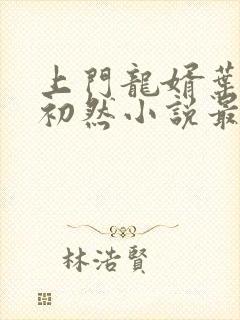 上門龍婿葉
初然小說最
林浩賢